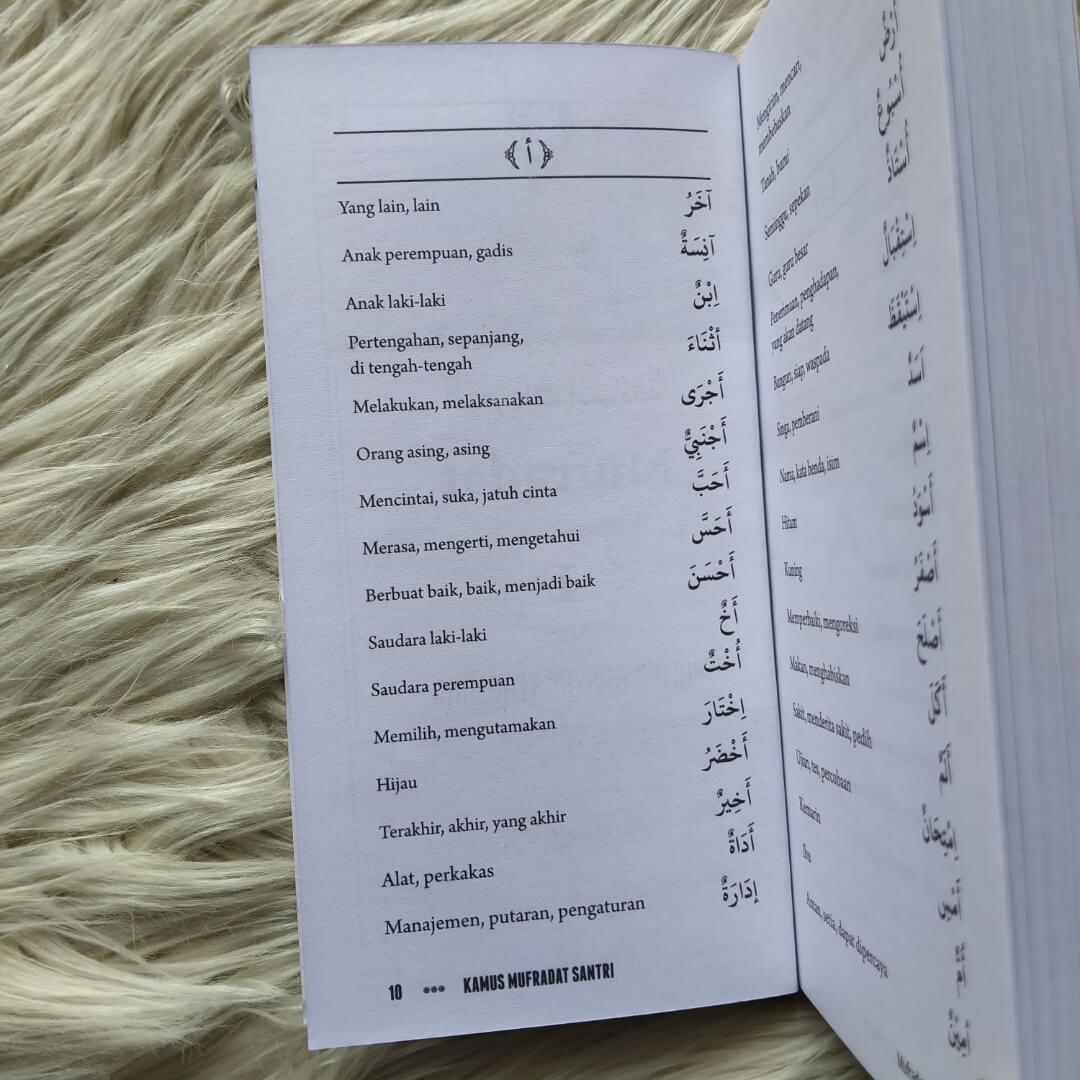 ﴾ أ ﴿
Yang lain, lain آخَرُ
Anak perempuan, gadis آنِسَةٌ
Anak laki-laki اِبْنٌ
Pertengahan, sepanjang,
di tengah-tengah أثْنَاءَ
Melakukan, melaksanakan أَجْرَى
Orang asing, asing أَجْنَبِيٌّ
Mencintai, suka, jatuh cinta أَحَبَّ
Merasa, mengerti, mengetahui أَحَسَّ
Berbuat baik, baik, menjadi baik أَحْسَنَ
Saudara laki-laki أَخٌ
Saudara perempuan أُخْتٌ
Memilih, mengutamakan اِخْتَارَ
Hijau أَخْضَرُ
Terakhir, akhir, yang akhir أَخِيرٌ
Alat, perkakas أَدَاةٌ
Manajemen, putaran, pengaturan إدَارَةٌ
10 ••• KAMUS MUFRADAT SANTRI
Mengirim, mencari,
membebaskan
Tanah, bumi أَرْضٌ
Seminggu, sepekan أُسْبُوعٌ
Guru, guru besar أُسْتَاذٌ
Penerimaan, penghadapan,
yang akan datang اِسْتِقْبَالٌ
Bangun, siap, waspada اِسْتَيْقَظَ
Singa, pemberani أَسَدٌ
Nama, kata benda, isim اِسْمٌ
Hitam أَسْوَدُ
Kuning أَصْفَرُ
Memperbaiki, mengoreksi أَصْلَحَ
Makan, menghabiskan أَكَلَ
Sakit, menderita sakit, pedih أَلَمٌ
Ujian, tes, percobaan اِمْتِحَانٌ
Kemarin أَمْسِ
Ibu أُمٌّ
Aman, setia, dapat dipercaya أَمِيْنٌ